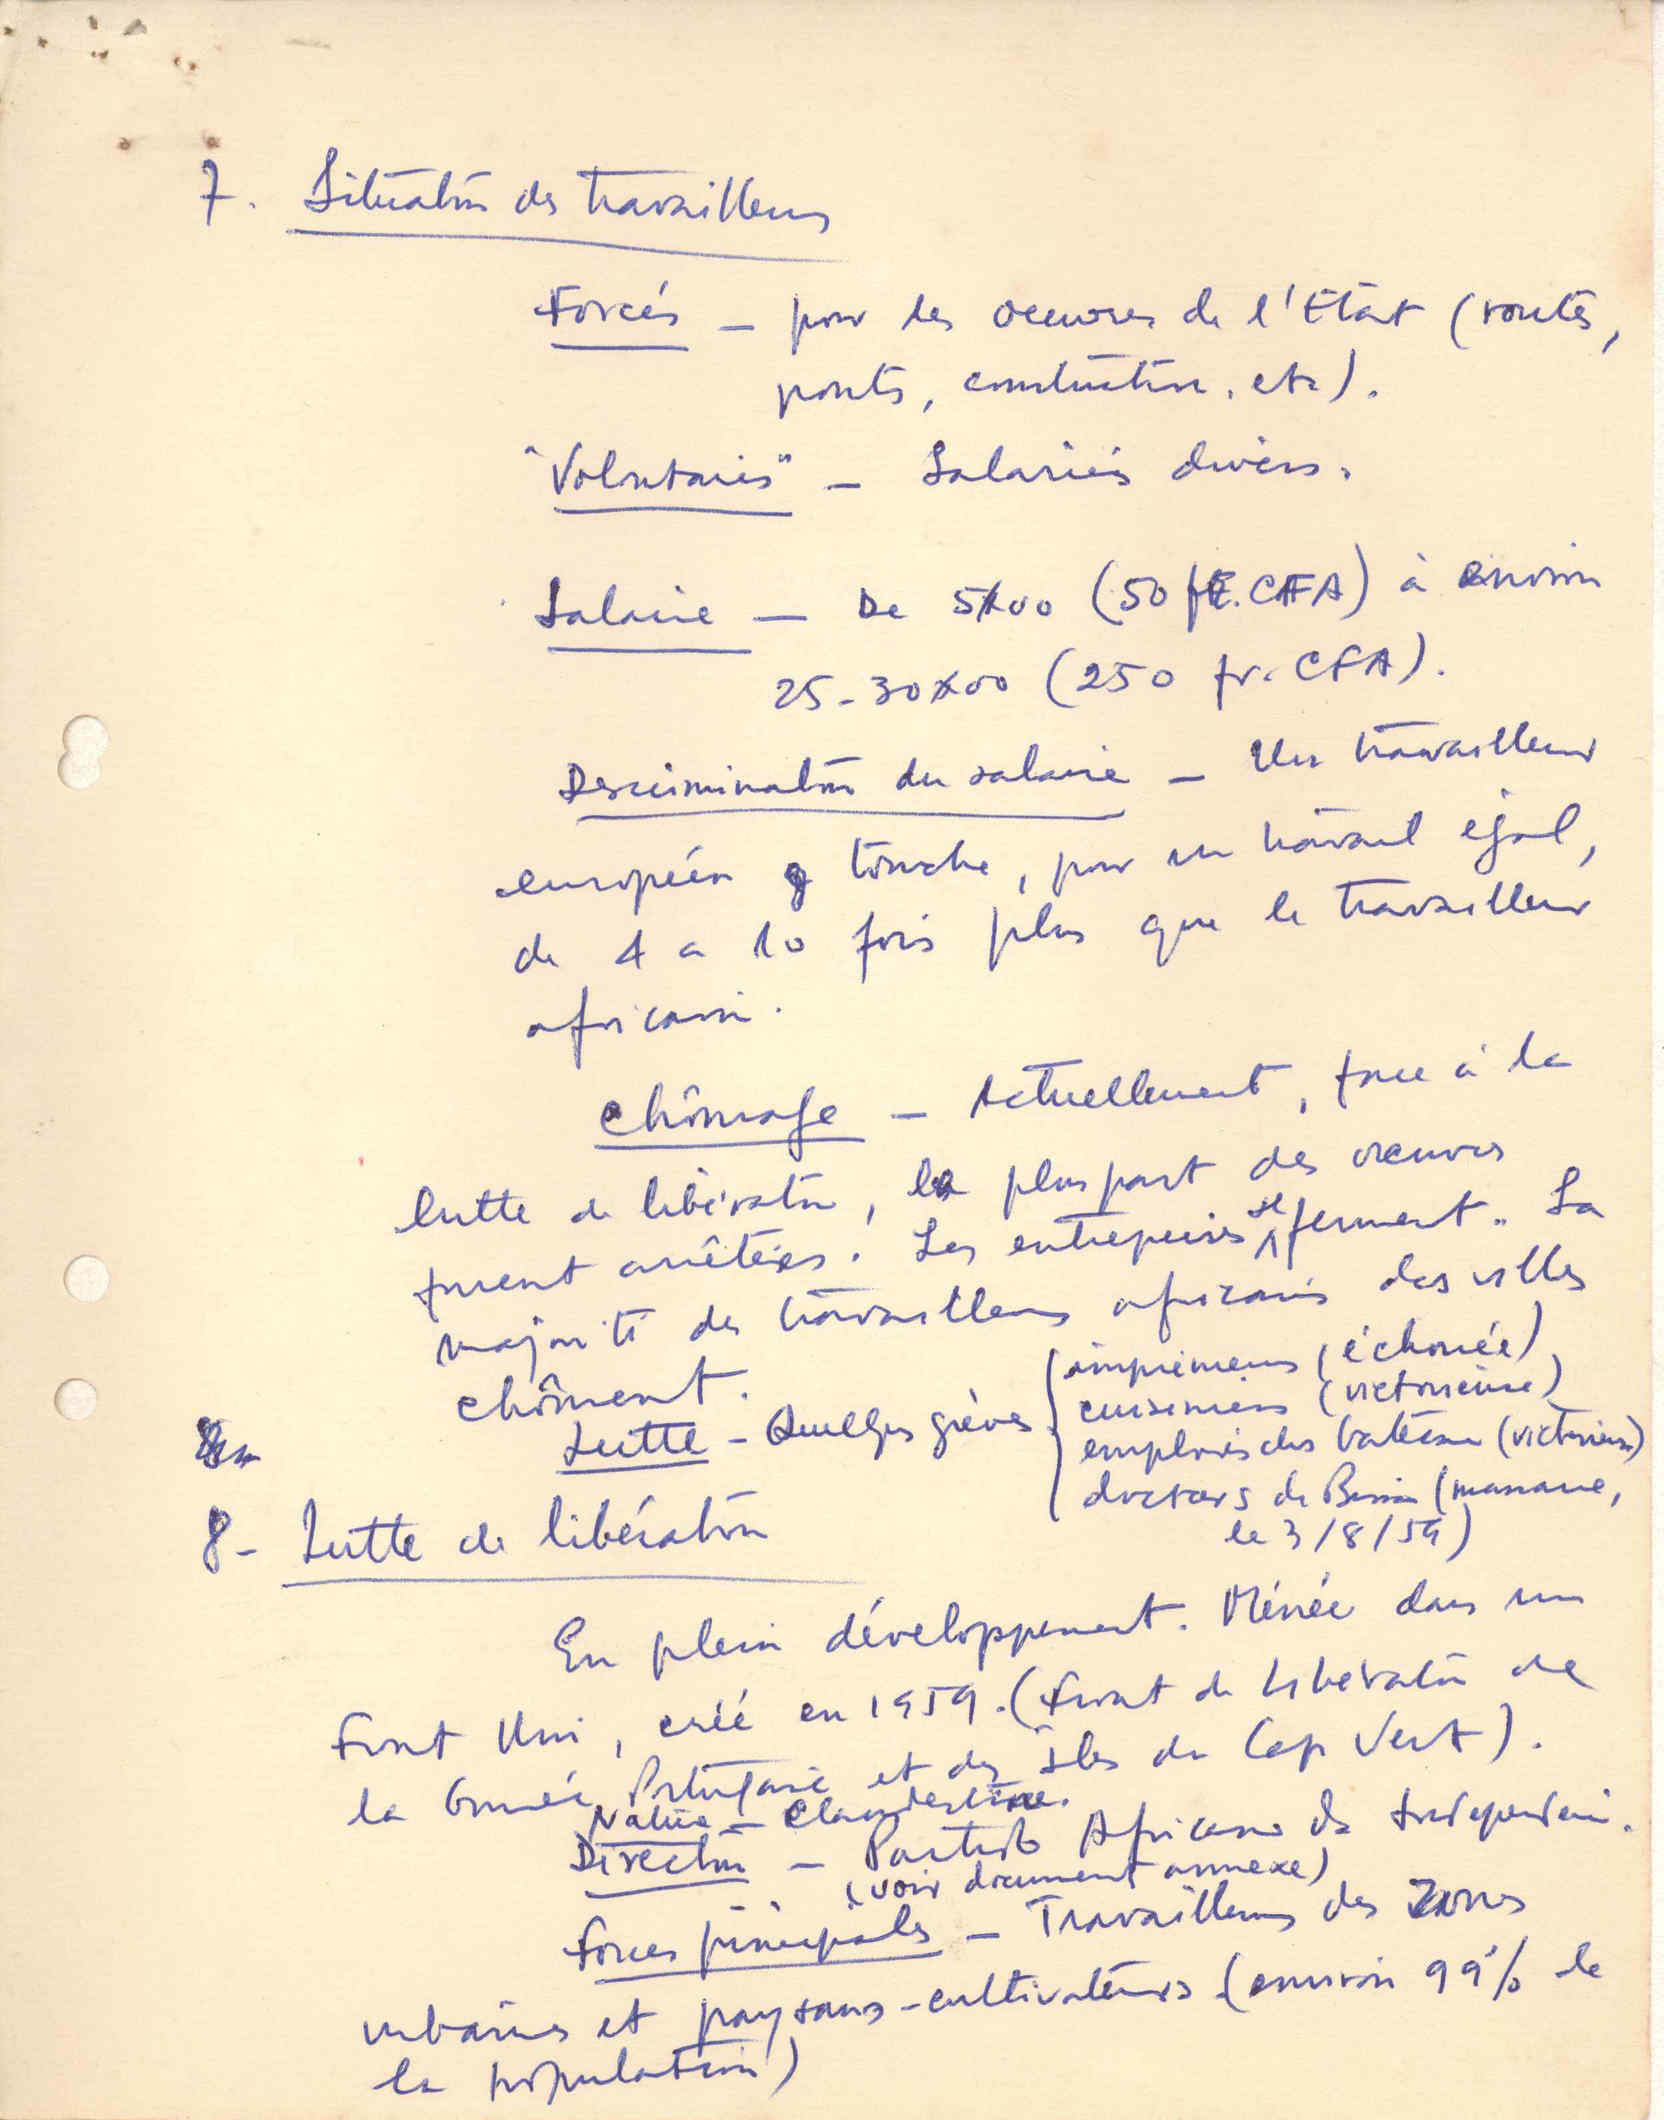 7. Situation des travailleurs
Forcés — pour les oeuvres de l'Etat (routes,
ponts, construction, etc).
"Volontaires" — Salariés divers.
Salaire — De 5$00 (50 fr. CFA) à environ
25-30$00 (250 fr. CFA).
Descrimination du salaire — Un travailleur
européen touche, pour un travail égal,
de 4 a 10 fois plus que le travailleur
africain.
Chômage — Actuellement, face à la
lutte de libération, la plus part des oeuvres
furent arrêtées. Les entreprises se ferment. La
majorité des travailleurs africains des villes
chôment.
Lutte — Quelques grèves
imprimeurs (échouée)
cuisiniers (victorieuse)
emploiés des bateaux (victorieuse)
dockers de Bissau (massacre,
le 3/8/59)
8- Lutte de libération
En plein développement. Ménée dans un
Front Uni, créé en 1959. (Front de Libération de
la Guinée Portugaise et des Iles du Cap Vert).
Nature — Clandestine.
Direction — Partido Africano da Independên.
(voir document annexe)
Forces principales — Travailleurs des zones
urbaines et paysans-cultivateurs (environ 99% de
la population)